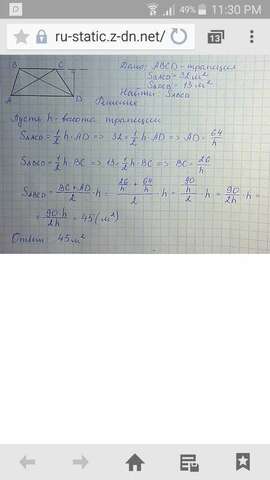 49% 11:30 PM
ru-static.z-dn.net/
13
B C
A D
Дано: ABCD-трапеция
SΔACD = 32 м²
SΔBCD = 13 м²
Найти: SABCD
Решение
Пусть h-высота трапеции
SΔACD = 1/2 h·AD => 32 = 1/2 h·AD => AD = 64/h
SΔBCD = 1/2 h·BC => 13 = 1/2 h·BC => BC = 26/h
SABCD = (BC+AD)/2 · h = (26/h + 64/h)/2 · h = (90/h)/2 · h = 90/2h · h =
= 90·h/2h = 45 (м²)
Ответ: 45 м²